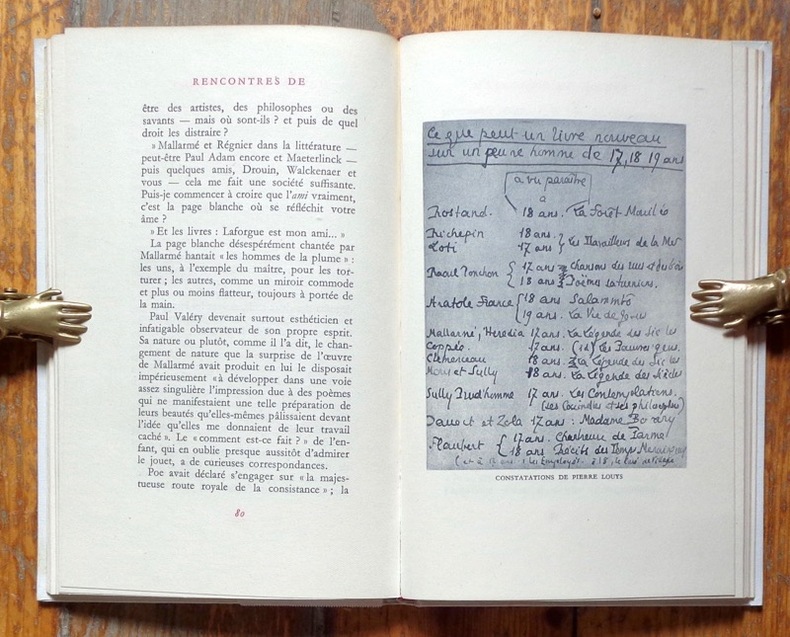 RENCONTRES DE
être des artistes, des philosophes ou des
savants — mais où sont-ils ? et puis de quel
droit les distraire ?
» Mallarmé et Régnier dans la littérature —
peut-être Paul Adam encore et Maeterlinck —
puis quelques amis, Drouin, Walckenaer et
vous — cela me fait une société suffisante.
Puis-je commencer à croire que l'ami vraiment,
c'est la page blanche où se réfléchit votre
âme ?
» Et les livres : Laforgue est mon ami... »
La page blanche désespérément chantée par
Mallarmé hantait « les hommes de la plume » :
les uns, à l'exemple du maître, pour les tor-
turer ; les autres, comme un miroir commode
et plus ou moins flatteur, toujours à portée de
la main.
Paul Valéry devenait surtout esthéticien et
infatigable observateur de son propre esprit.
Sa nature ou plutôt, comme il l'a dit, le chan-
gement de nature que la surprise de l'œuvre
de Mallarmé avait produit en lui le disposait
impérieusement « à développer dans une voie
assez singulière l'impression due à des poèmes
qui ne manifestaient une telle préparation de
leurs beautés qu'elles-mêmes pâlissaient devant
l'idée qu'elles me donnaient de leur travail
caché ». Le « comment est-ce fait ? » de l'en-
fant, qui en oublie presque aussitôt d'admirer
le jouet, a de curieuses correspondances.
Poe avait déclaré s'engager sur « la majes-
tueuse route royale de la consistance » ; la
80
Ce que peut un livre nouveau
sur un jeune homme de 17, 18 19 ans
a vu paraître
à
Rostand. 18 ans. La Forêt Mouillée
Richepin 18 ans.
Loti 17 ans Les Travailleurs de la Mer
Raoul Ponchon 17 ans Chansons des rues et des bois
18 ans Poèmes saturniens.
Anatole France 18 ans Salammbô
19 ans La Vie de Jésus
Mallarmé, Heredia 17 ans. La Légende des Siècles
Coppée 17 ans. (id) Les Pauvres gens.
Clemenceau 18 ans La Légende des Siècles
Mounet Sully 18 ans. La Légende des Siècles
Sully Prudhomme 17 ans. Les Contemplations.
Daudet et Zola 17 ans : Madame Bovary
Flaubert 17 ans. Chartreuse de Parme
18 ans Récits des Temps Mérovingiens
CONSTATATIONS DE PIERRE LOUYS